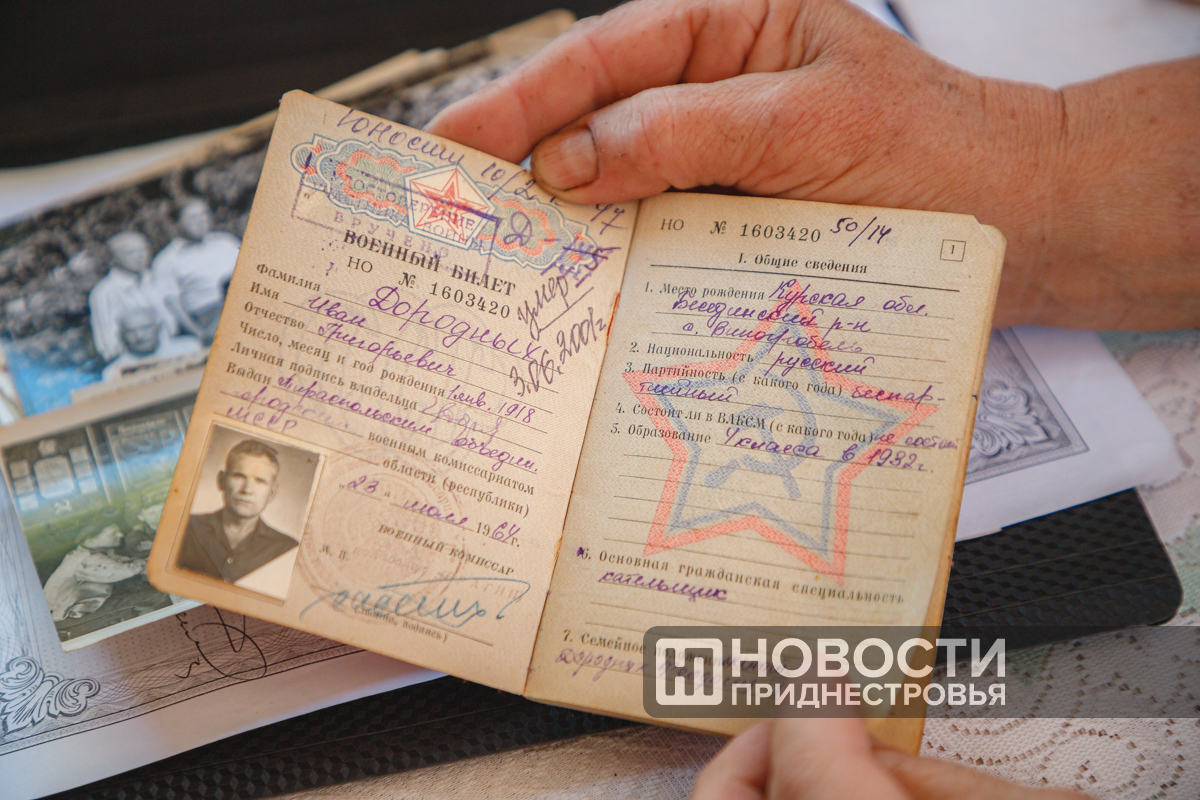 ОСВОБОЖДЕНИЕ
ВРУЧЕНО
ВОЕННЫЙ БИЛЕТ
НО № 1603420
умер
3.06.2001г.
Фамилия Дородных
Имя Иван
Отчество Григорьевич
Число, месяц и год рождения 1 янв. 1918
Личная подпись владельца
Выдан Тираспольским объедин.
городским военным комиссариатом
МССР области (республики)
"23" мая 1964 г.
ВОЕННЫЙ КОМИССАР
М. П.
(звание, подпись)
НО № 1603420 50/14
1
I. Общие сведения
1. Место рождения Курская обл.
Бесединский р-н
с.
2. Национальность русский
3. Партийность (с какого года) беспар-
тийный
4. Состоит ли в ВЛКСМ (с какого года) не состоит
5. Образование 4 класса в 1932 г.
6. Основная гражданская специальность
катальщик
7. Семейное
Дородных
НОВОСТИ
ПРИДНЕСТРОВЬЯ